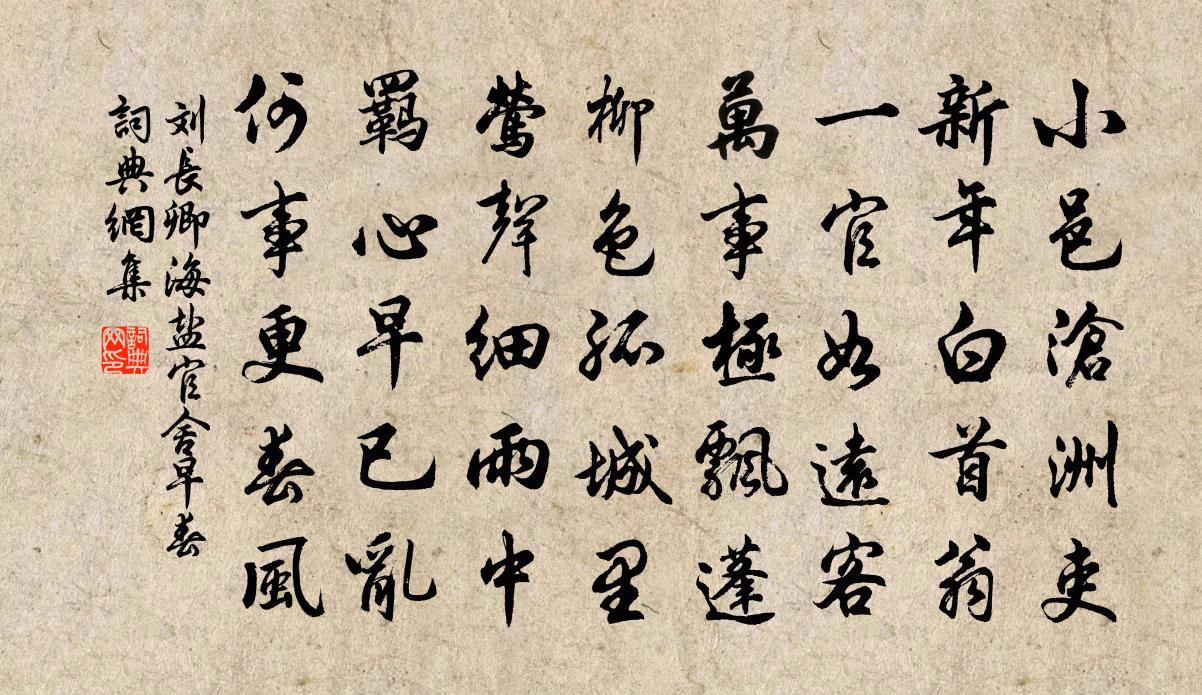 小邑滄洲吏
新年白首翁
一官如遠客
萬事極飄蓬
柳色孤城里
鶯聲細雨中
羈心早已亂
何事更春風
刘長卿海盐官舍早春
詞典網集
詞典网印